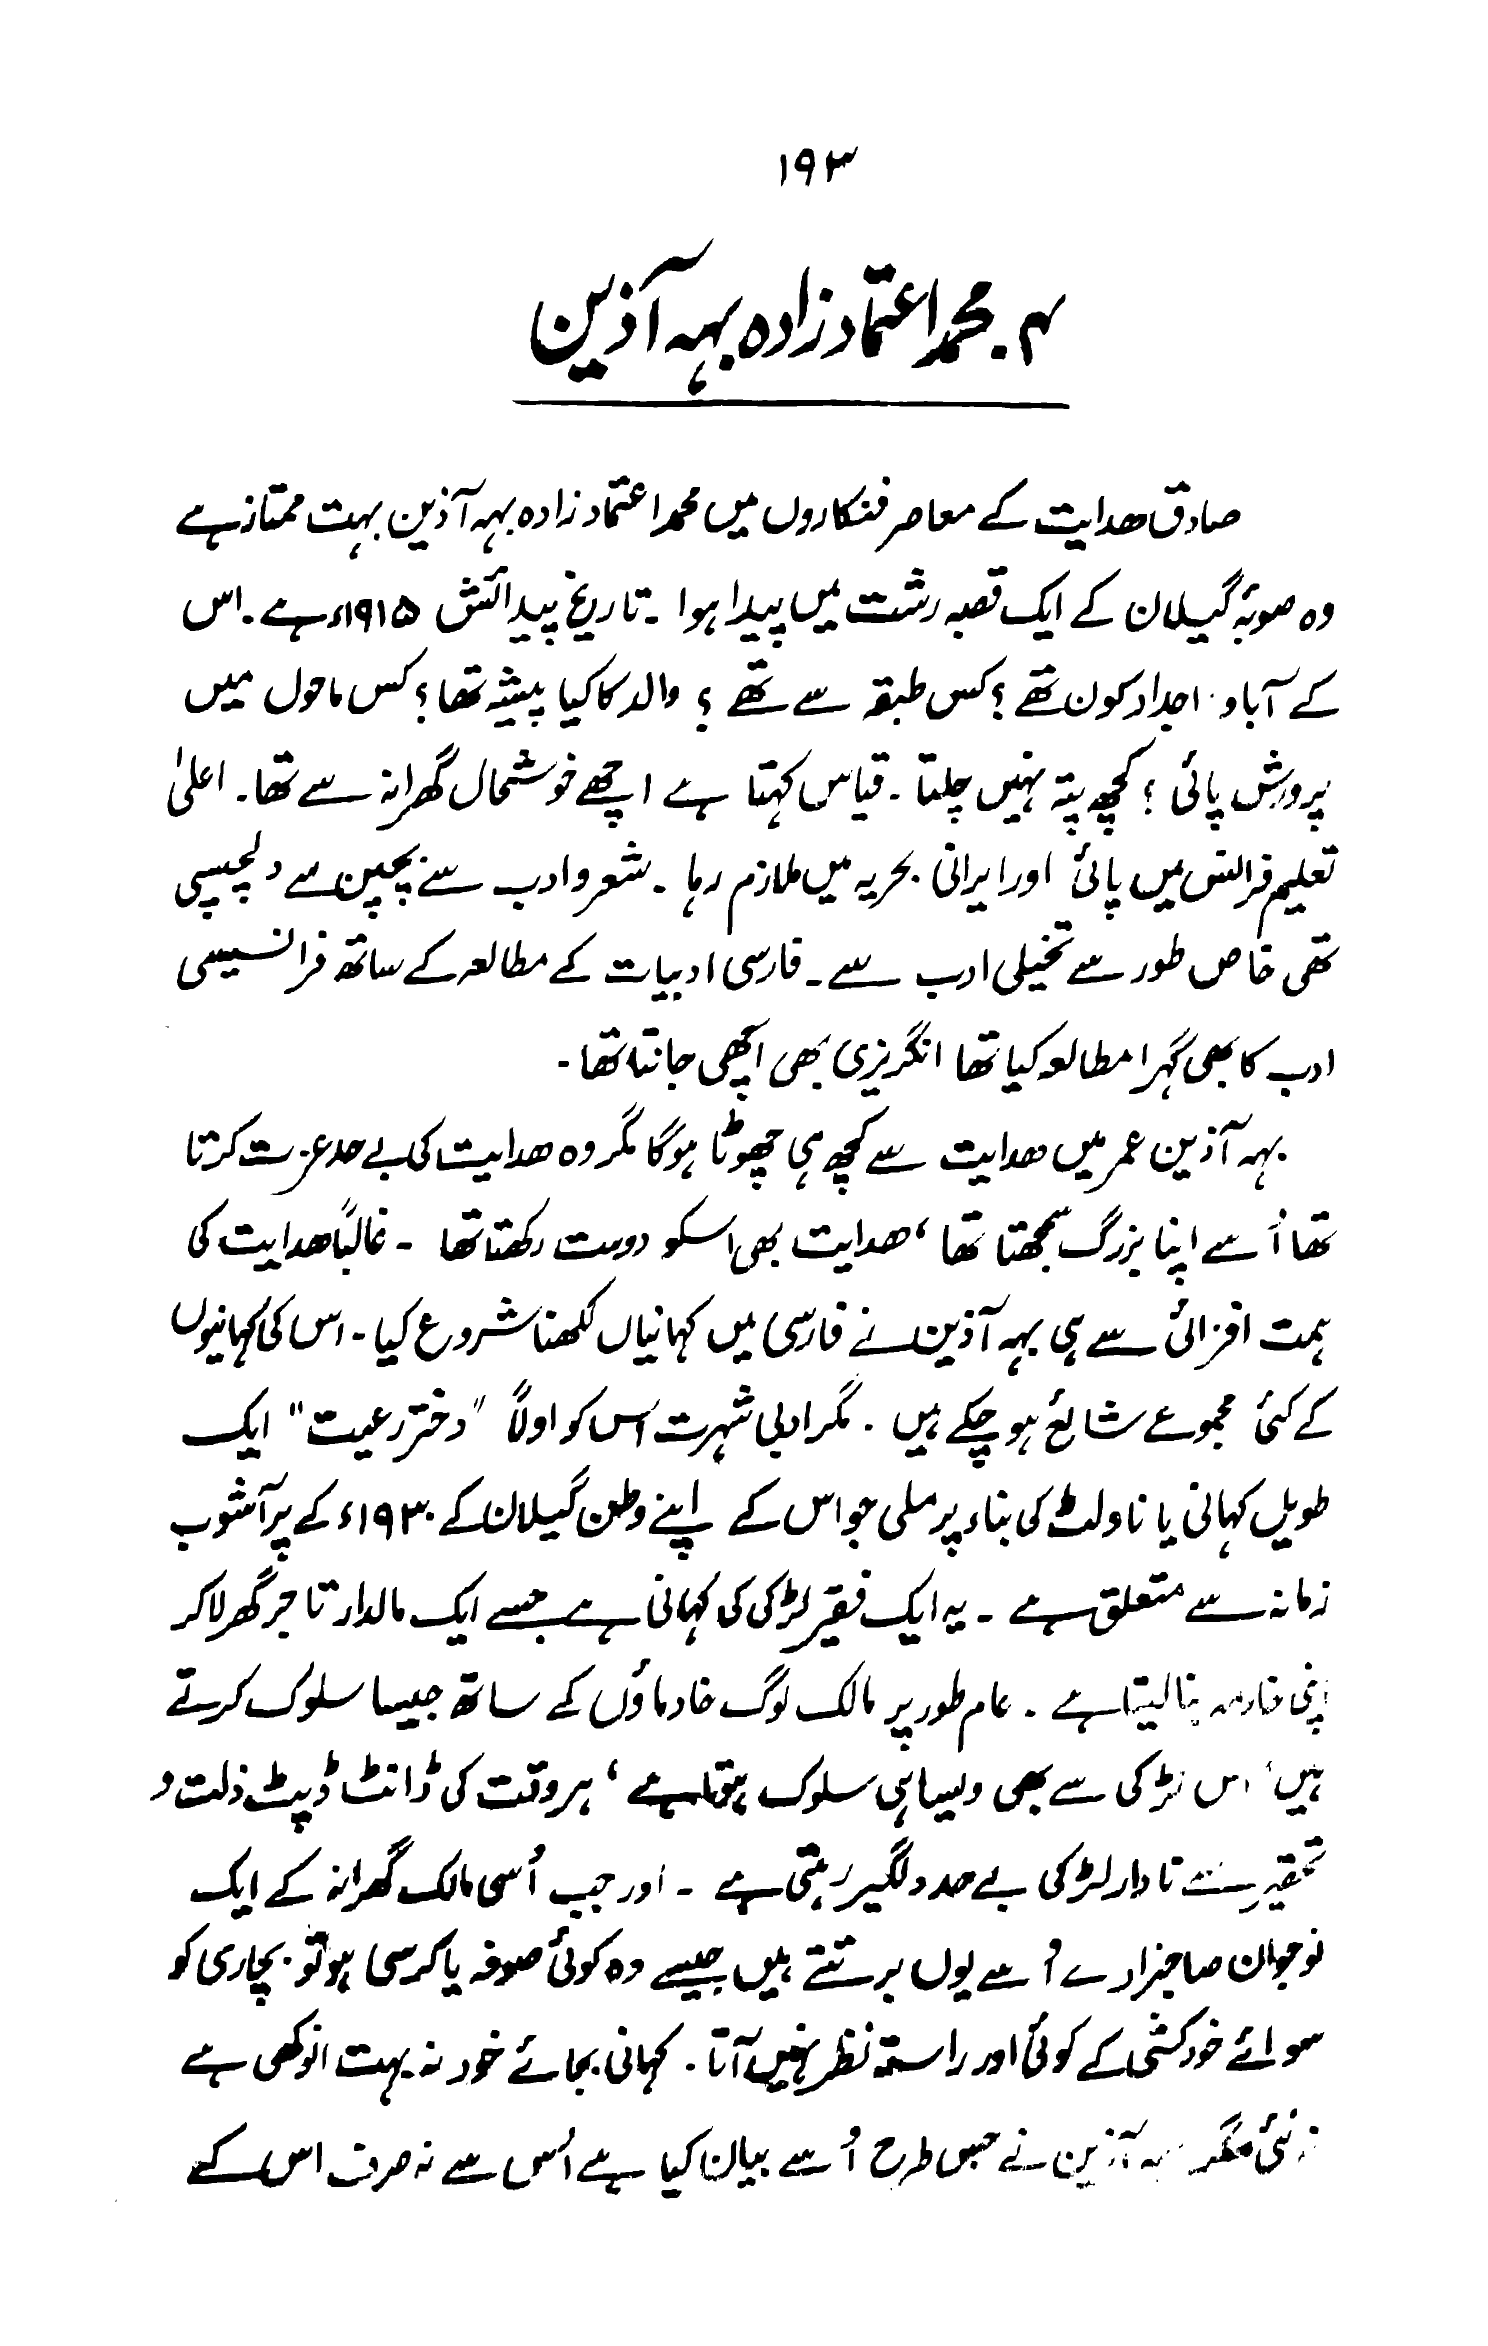 ۱۹۳
۴۔ محمد اعتماد زادہ بہہ آذین
صادق ھدایت کے معاصر فنکاروں میں محمد اعتماد زادہ بہہ آذین بہت ممتاز ہے
وہ صوبۂ گیلان کے ایک قصبہ رشت میں پیدا ہوا ۔ تاریخ پیدائش ۱۹۱۵ء ہے ۔ اس
کے آباو اجداد کون تھے ؟ کس طبقہ سے تھے ؟ والد کا کیا پیشہ تھا ؟ کس ماحول میں
پرورش پائی ؟ کچھ پتہ نہیں چلتا ۔ قیاس کہتا ہے اچھے خوشحال گھرانہ سے تھا ۔ اعلیٰ
تعلیم فرانس میں پائی اور ایرانی بحریہ میں ملازم رہا ۔ شعر و ادب سے بچپن سے دلچسپی
تھی خاص طور سے تخیلی ادب سے ۔ فارسی ادبیات کے مطالعہ کے ساتھ فرانسیسی
ادب کا بھی گہرا مطالعہ کیا تھا انگریزی بھی اچھی جانتا تھا ۔
بہہ آذین عمر میں ھدایت سے کچھ ہی چھوٹا ہوگا مگر وہ ھدایت کی بے حد عزت کرتا
تھا اُسے اپنا بزرگ سمجھتا تھا ، ھدایت بھی اسکو دوست رکھتا تھا ۔ غالباً ھدایت کی
ہمت افزائی سے ہی بہہ آذین نے فارسی میں کہانیاں لکھنا شروع کیا ۔ اس کی کہانیوں
کے کئی مجموعے شائع ہو چکے ہیں ۔ مگر ادبی شہرت اُس کو اولاً "دختر رعیت" ایک
طویل کہانی یا ناولٹ کی بناء پر ملی جو اس کے اپنے وطن گیلان کے ۱۹۳۰ء کے پر آشوب
زمانہ سے متعلق ہے ۔ یہ ایک فقیر لڑکی کی کہانی ہے جسے ایک مالدار تاجر گھر لا کر
اپنی خادمہ بنا لیتا ہے ۔ عام طور پر مالک لوگ خادماؤں کے ساتھ جیسا سلوک کرتے
ہیں ، اس لڑکی سے بھی ویسا ہی سلوک ہوتا ہے ، ہر وقت کی ڈانٹ ڈپٹ ذلت و
تحقیر سے نادار لڑکی بے حد دلگیر رہتی ہے ۔ اور جب اُسی مالک گھرانہ کے ایک
نوجوان صاحبزادے اُسے یوں برتتے ہیں جیسے وہ کوئی صوفہ یا کرسی ہو تو بچاری کو
سوائے خودکشی کے کوئی اور راستہ نظر نہیں آتا ۔ کہانی بجائے خود نہ بہت انوکھی ہے
نہ نئی مگر بہہ آذین نے جس طرح اُسے بیان کیا ہے اُس سے نہ صرف اس کے